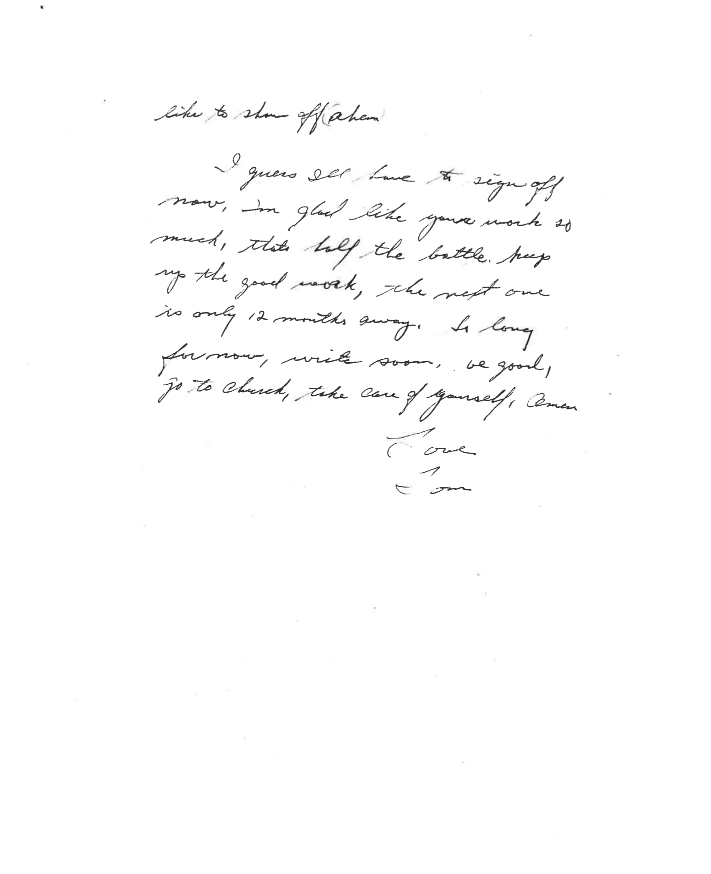 like to show off (ahem
I guess I'll have to sign off
now, I'm glad like your work so
much, thats half the battle. keep
up the good work, the next one
is only 12 months away. So long
for now, write soon, be good,
go to church, take care of yourself, Amen
Love
Tom